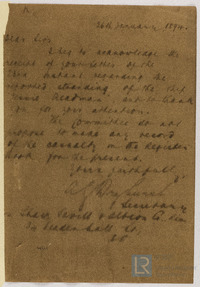 26th January 1894.
Dear Sirs
I beg to acknowledge the
receipt of your letter of the
instant regarding the
reported stranding of the ship
and to thank
you for your attention.
The Committee do not
propose to make any record
of the casualty in the Register
Book for the present.
Yours faithfully
Secretary
Shaw Savill & Albion Co.
34 Leadenhall St.
LR